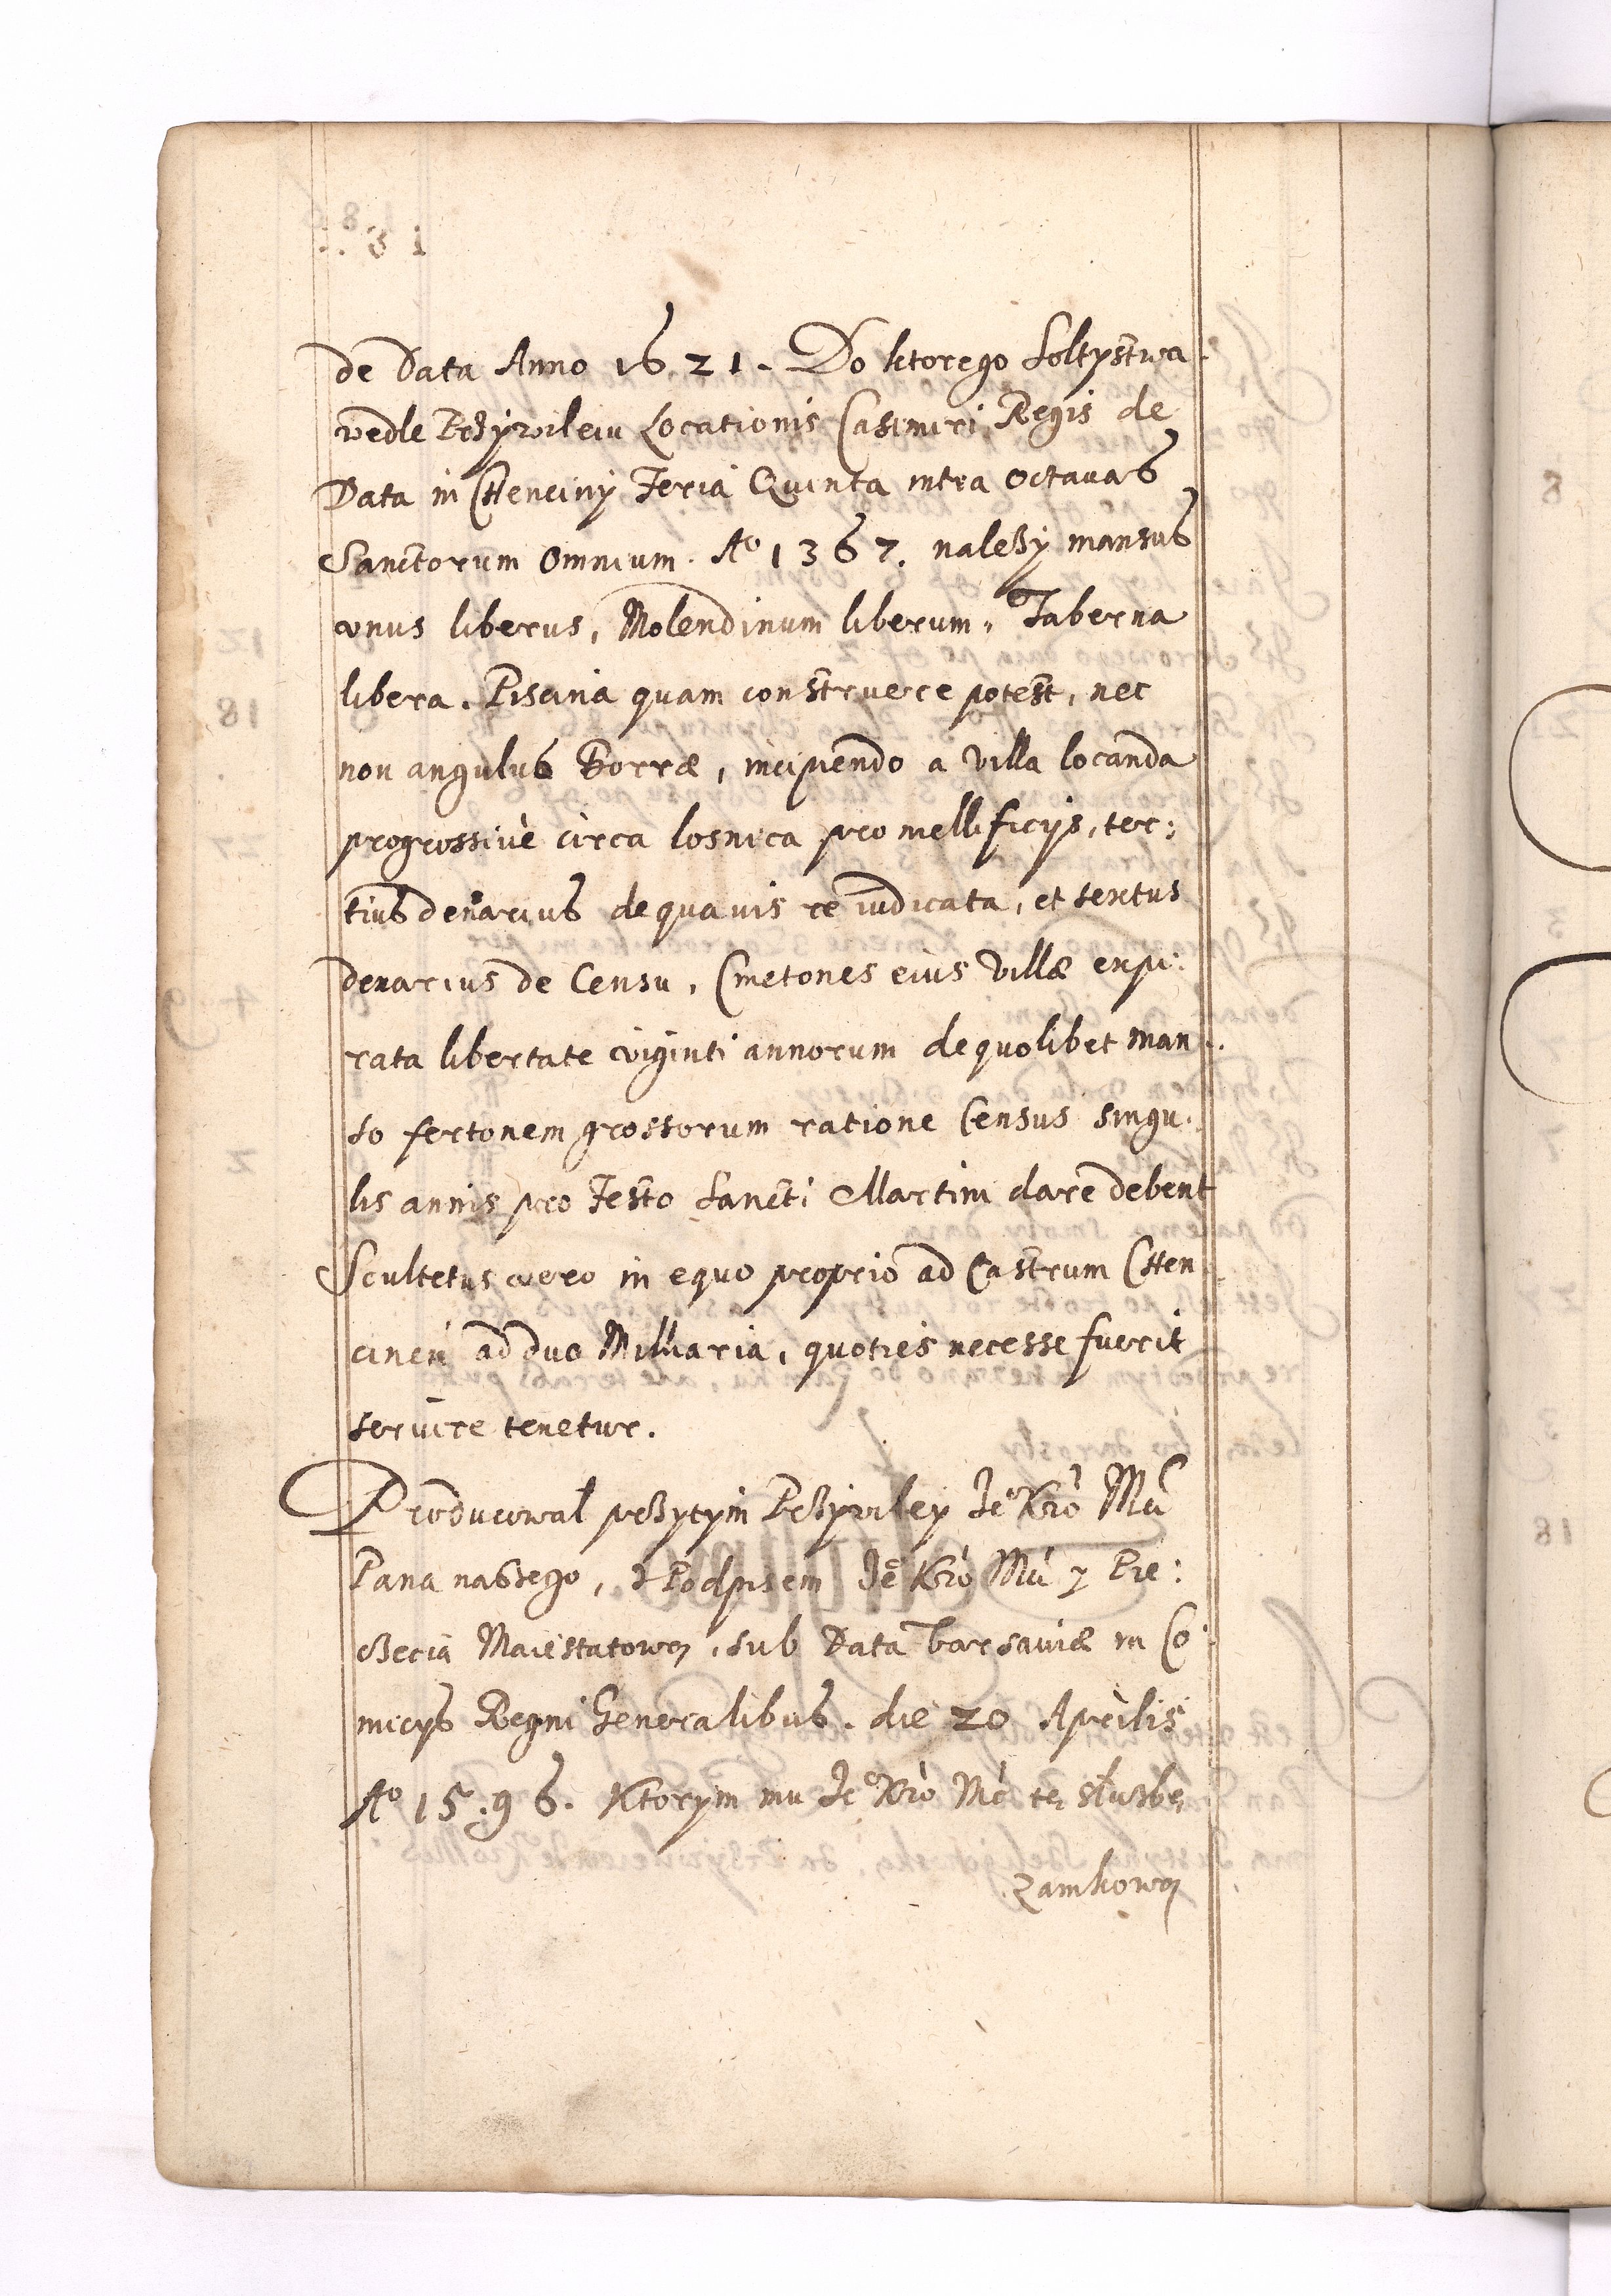 de Data Anno 1621. Do ktorego Soltystwa
wedle Przywileiu Locationis Casimiri Regis de
Data in Chenciny Feria Quinta intra Octauas
Sanctorum Omnium. Aº 1367. należy mansus
vnus liberus, Molendinum liberum, Taberna
libera. Piscina quam construere potest, nec
non angulus Borræ, incipiendo a villa locanda
progressiuè circa losnica pro mellificijs, ter:
tius denarius de quauis re iudicata, et sextus
denarius de Censu, Cmetones eius villæ expi:
rata libertate viginti annorum de quolibet man:
so fertonem grossorum ratione Census singu:
lis annis pro Festo Sancti Martini dare debent
Scultetus vero in equo proprio ad Castrum Chen:
cinen ad duo Milliaria, quoties necesse fuerit
seruire tenetur.
Producował przytym Przywiley Jeº Kró Mći
Pana naszego, z Podpisem Jeº Kró Mći y Pie:
częcią Maiestatową, sub Data Varsauiæ in Co:
mitijs Regni Generalibus. die 20 Aprilis
Aº 15.96. Ktorym mu Jeº Kró Mć tę służbę
zamkową